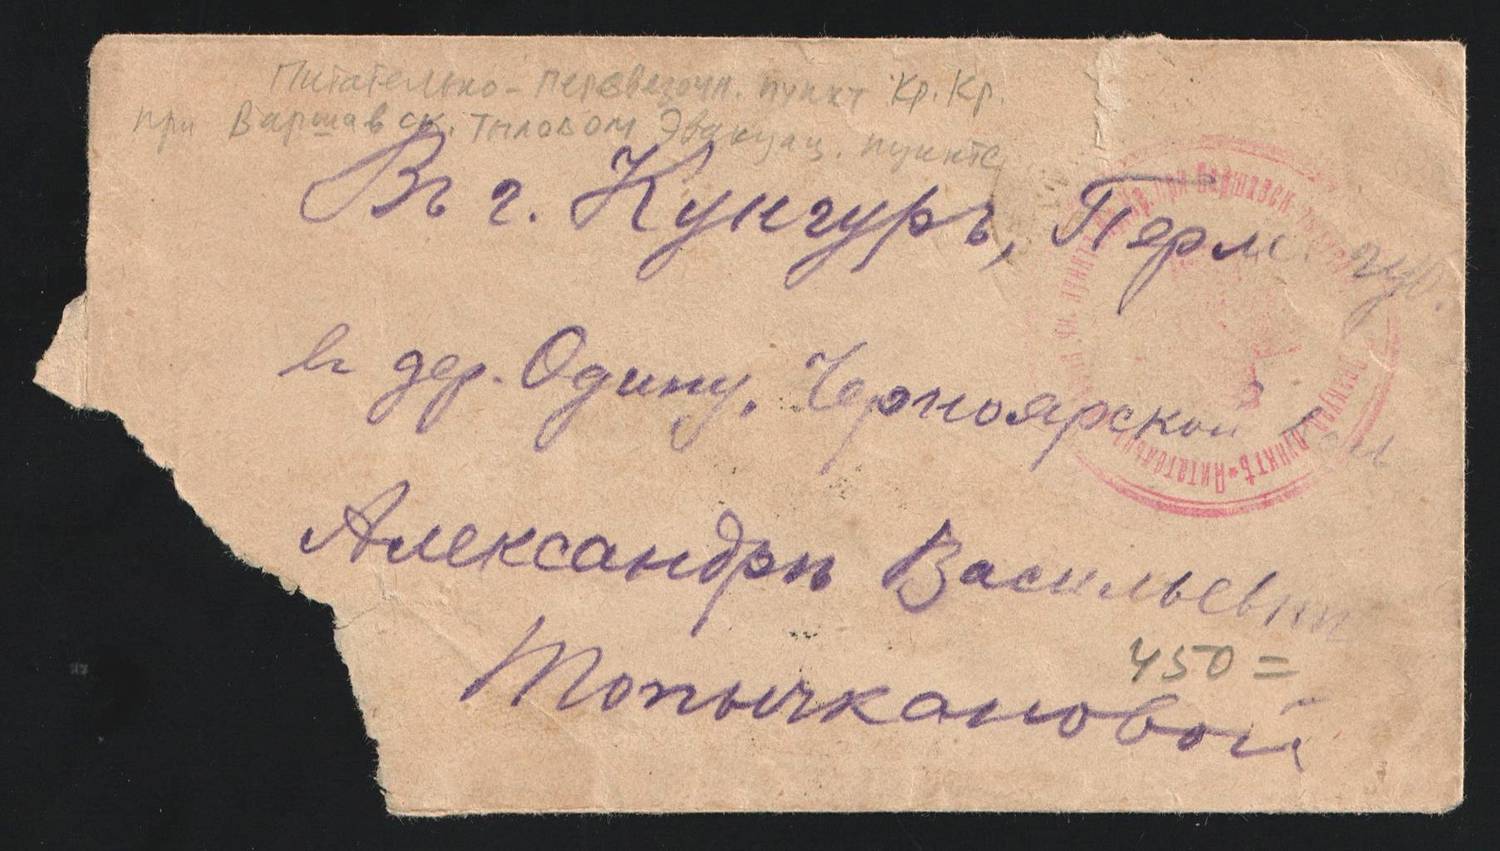 Питательно-перевезочн. пункт Кр. Кр.
при Варшавск. тыловом Эвакуац. пункте
Въ г. Кунгуръ, Перм. губ.
въ дер. Одину, Черноярской вол
Александрѣ Васильевнѣ
450=
Топычкановой
при Варшавск. эвакуац. пунктѣ * Питательно